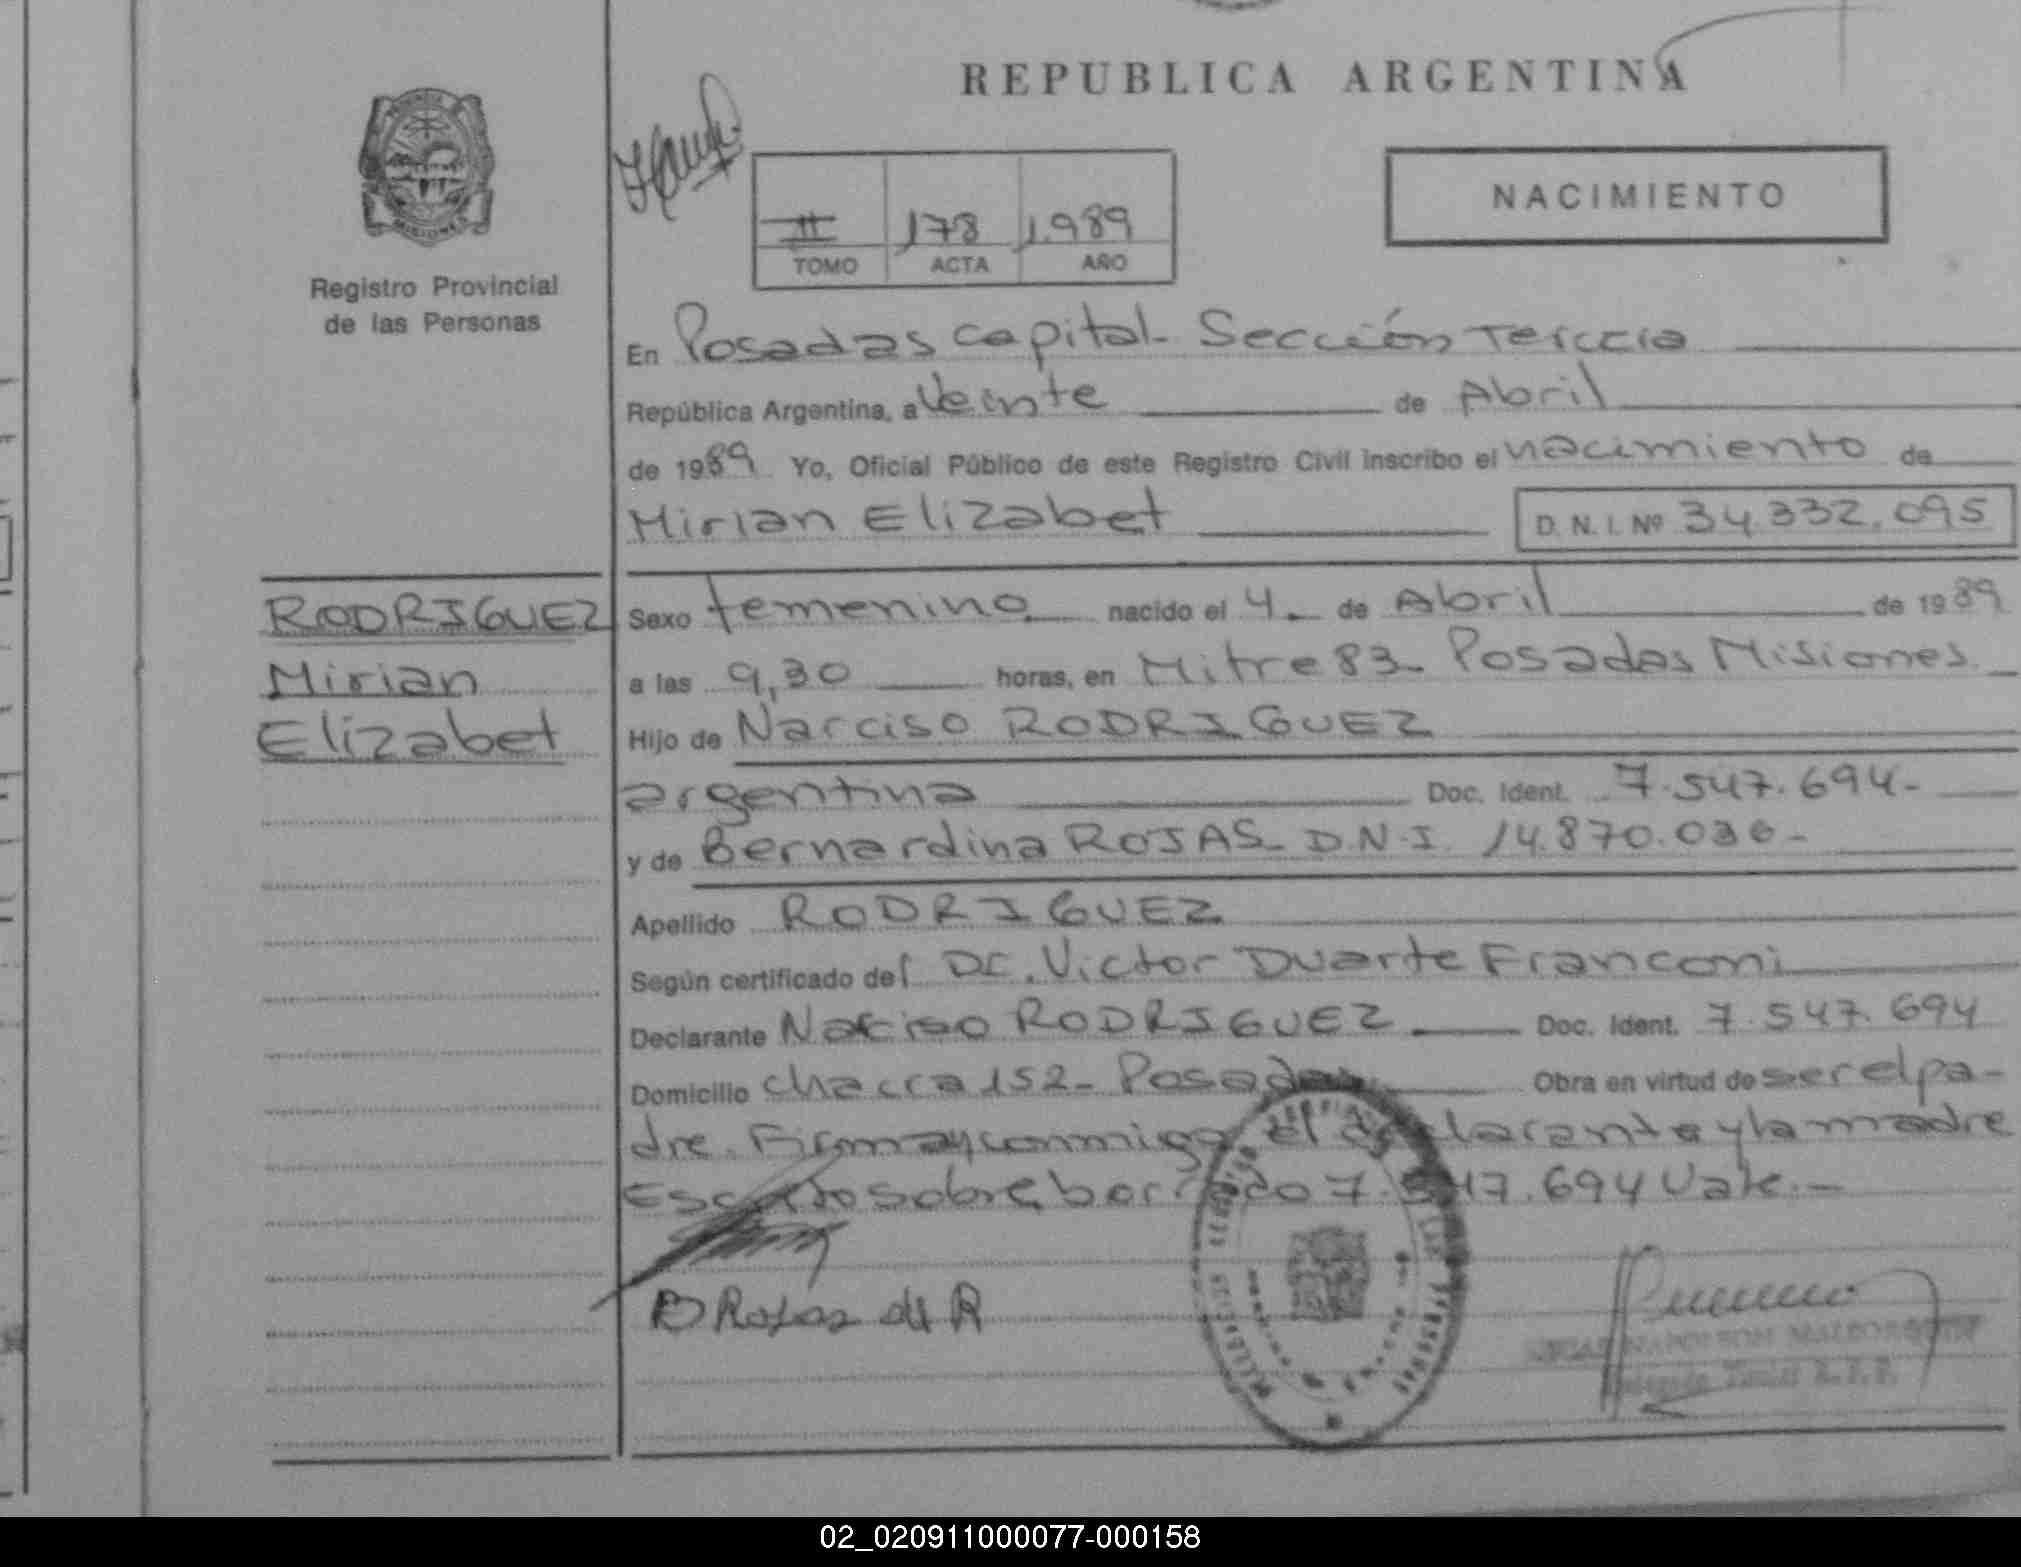 REPUBLICA ARGENTINA
NACIMIENTO
II 178 1.989
TOMO ACTA AÑO
Registro Provincial
de las Personas
En Posadas Capital - Sección Tercera
República Argentina, a Veinte de Abril
de 1989 Yo, Oficial Público de este Registro Civil inscribo el nacimiento de
Mirian Elizabet D. N. I. Nº 34.332.095
RODRIGUEZ
Mirian
Elizabet
Sexo femenino nacido el 4 de Abril de 1989
a las 9,30 horas, en Mitre 83 - Posadas Misiones
Hijo de Narciso RODRIGUEZ
argentina Doc. Ident. 7.547.694-
y de Bernardina ROJAS - D.N.I. 14.870.036-
Apellido RODRIGUEZ
Según certificado del Dr. Victor Duarte Franconi
Declarante Narciso RODRIGUEZ Doc. Ident. 7.547.694
Domicilio chacra 152 - Posadas Obra en virtud de ser el pa-
dre. Firma y conmigo el declarante y la madre
Escrito sobre borrado 7.547.694 Vale.-
B Rojas de R
02_020911000077-000158